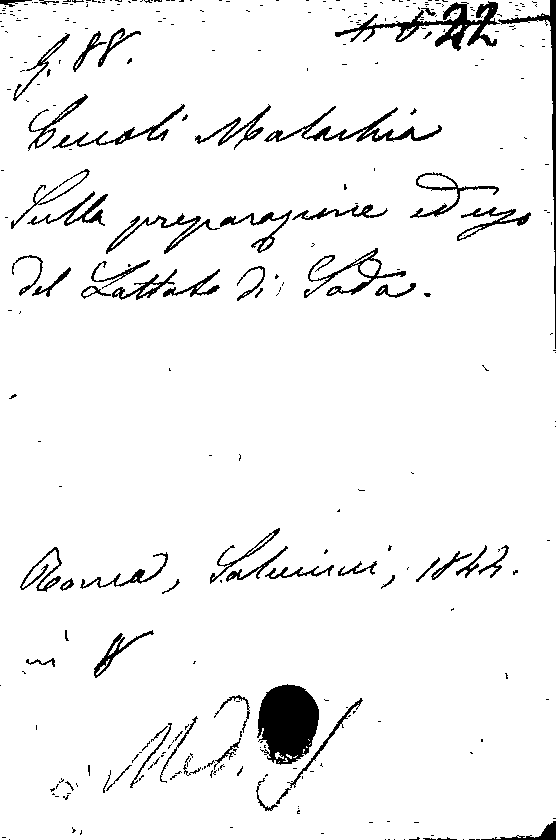 G. 88.
22
Ceccoli Malachia
Sulla preparazione ed uso
del Lattato di Soda.
Roma, Salviucci, 1844.
in 8
Med.